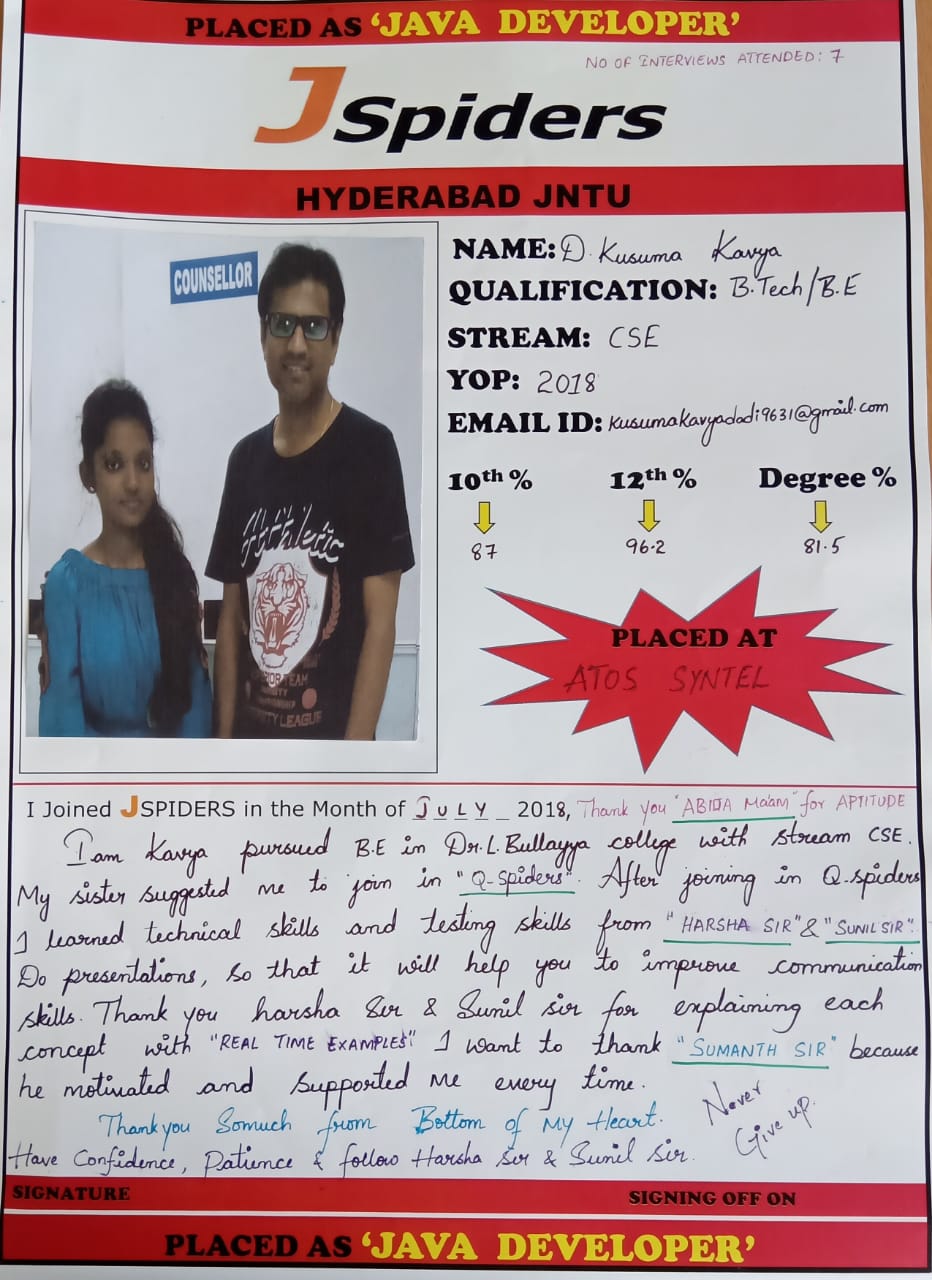 PLACED AS ‘JAVA DEVELOPER’
NO OF INTERVIEWS ATTENDED: 7
JSpiders
HYDERABAD JNTU
COUNSELLOR
NAME: D. Kusuma Kavya
QUALIFICATION: B.Tech/B.E
STREAM: CSE
YOP: 2018
EMAIL ID: kusumakavyadadi9631@gmail.com
10th % 12th % Degree %
87 96.2 81.5
PLACED AT
ATOS SYNTEL
Athletic
TEAM
ITY LEAGUE
I Joined JSPIDERS in the Month of JULY _ 2018, Thank you "ABIDA Ma'am" for APTITUDE
I am Kavya pursued B.E in Dr. L. Bullayya college with stream CSE.
My sister suggested me to join in "Q-Spiders". After joining in Q.spiders
I learned technical skills and testing skills from "HARSHA SIR" & "SUNIL SIR".
Do presentations, so that it will help you to improve communication
skills. Thank you harsha Sir & Sunil sir for explaining each
concept with "REAL TIME EXAMPLES" I want to thank "SUMANTH SIR" because
he motivated and supported me every time.
Never
Give up.
Thankyou Somuch from Bottom of My Heart.
Have Confidence, Patience & follow Harsha sir & Sunil Sir.
SIGNATURE SIGNING OFF ON
PLACED AS ‘JAVA DEVELOPER’